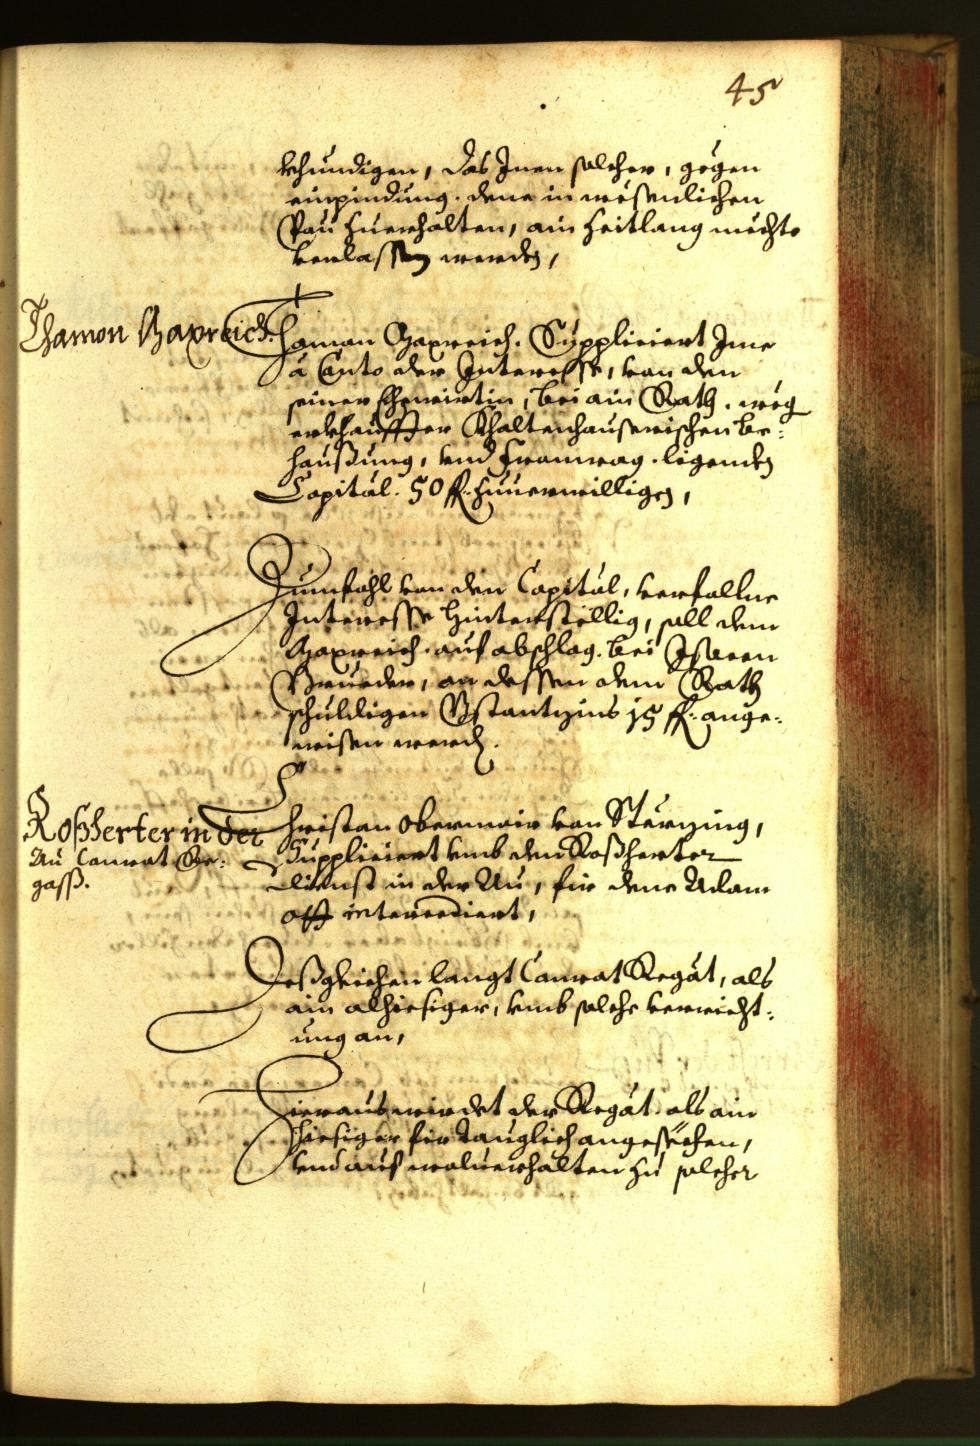 45
khundigen, das Inen solcher, gegen
einpindung. dene in wesenlichen
Pau zuerhalten, ain Zeitlang mechte
verlassen werden,
Thamon Gaxreich.
Thaman Gaxreich. Suppliciert Ime
à Conto der Interesse, von den
seiner Ehewirtin, bei ain Rath. weg
erkhauffter Khaltenhauserischen be-
haußung, vnd Framwag. ligenden
Capital. 50 fl. zuuerwilligen,
Zumfahl von den Capital, verfallne
Interesse hinterstellig, soll dem
Gaxreich. auf abschlag. bei
Brueder, an dessen dem Rath
schuldigen Bstantzins 15 fl. ange-
wisen werden.
Roßherter in der
Au Conrat Re-
gass.
Christan Obermair von Sterzing,
Suppliciert vmb den Roßherter
dienst in der Au, für dene Adam
intercediert,
Deßgleichen langt Conrat Regät, als
ain alhiesiger, vmb solche verricht-
ung an,
Hierauf wirdet der Regät. als ain
hiesiger für Tauglich angesechen,
vnd auf wolverhalten zu solcher